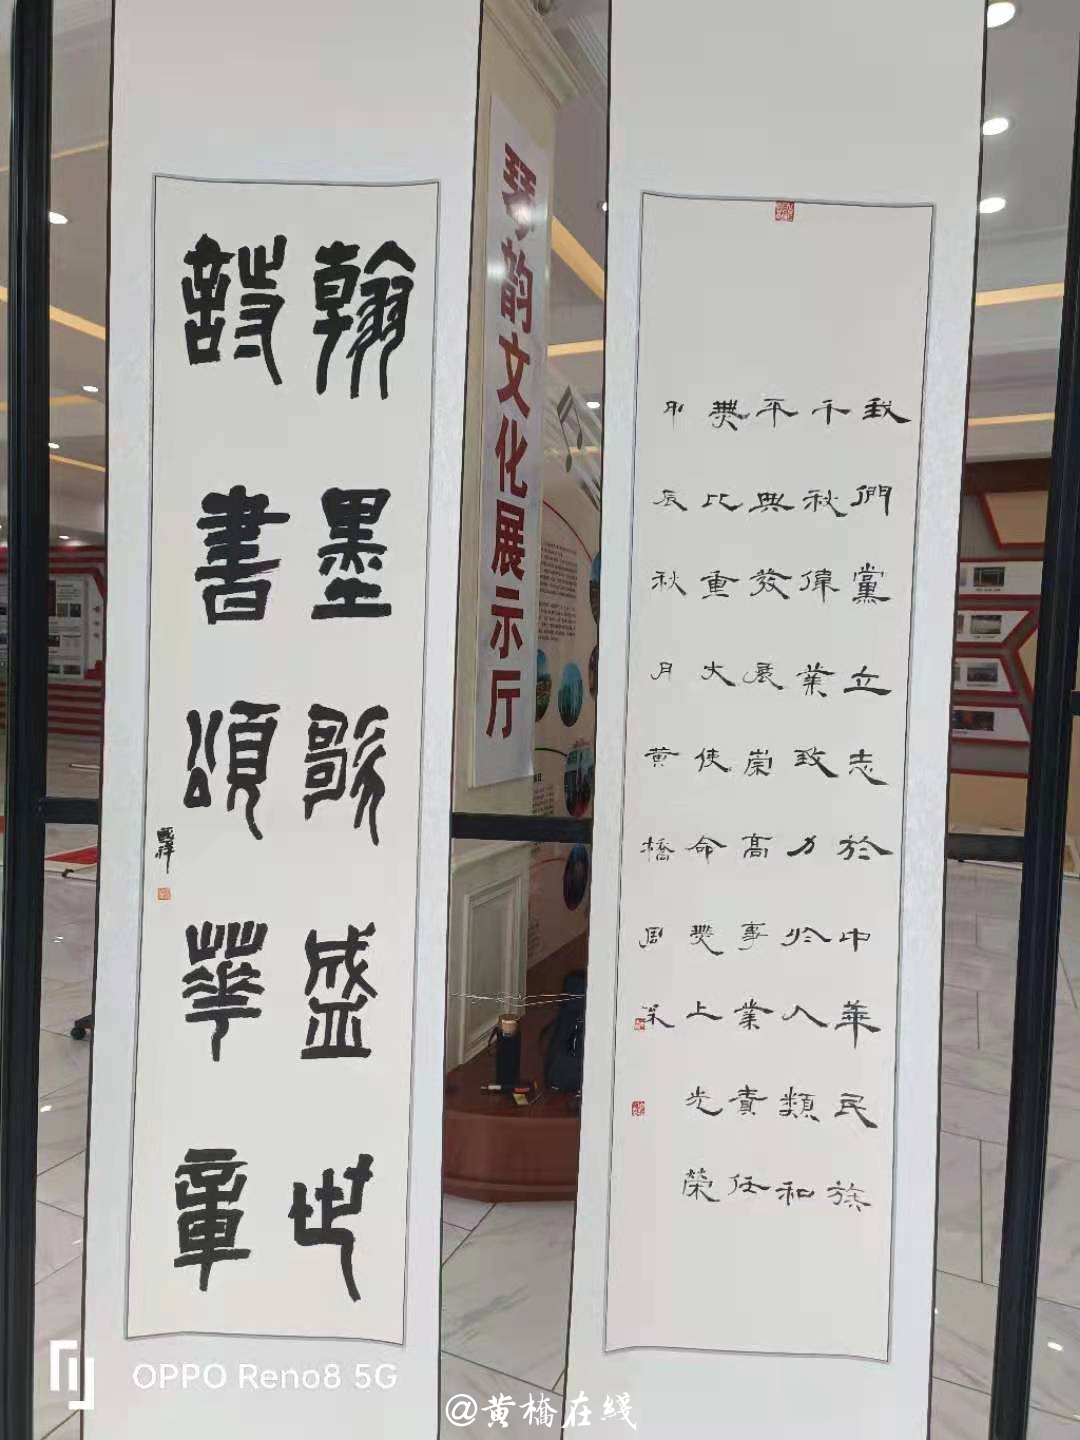 翰墨歌盛世
詩書頌華章
國祥
琴韵文化展示厅
我們黨立志於中華民族
千秋偉業致力於人類和
平與發展崇高事業責任
無比重大使命無上光榮
甲辰秋月黄橋周
OPPO Reno8 5G
@黄橋在綫